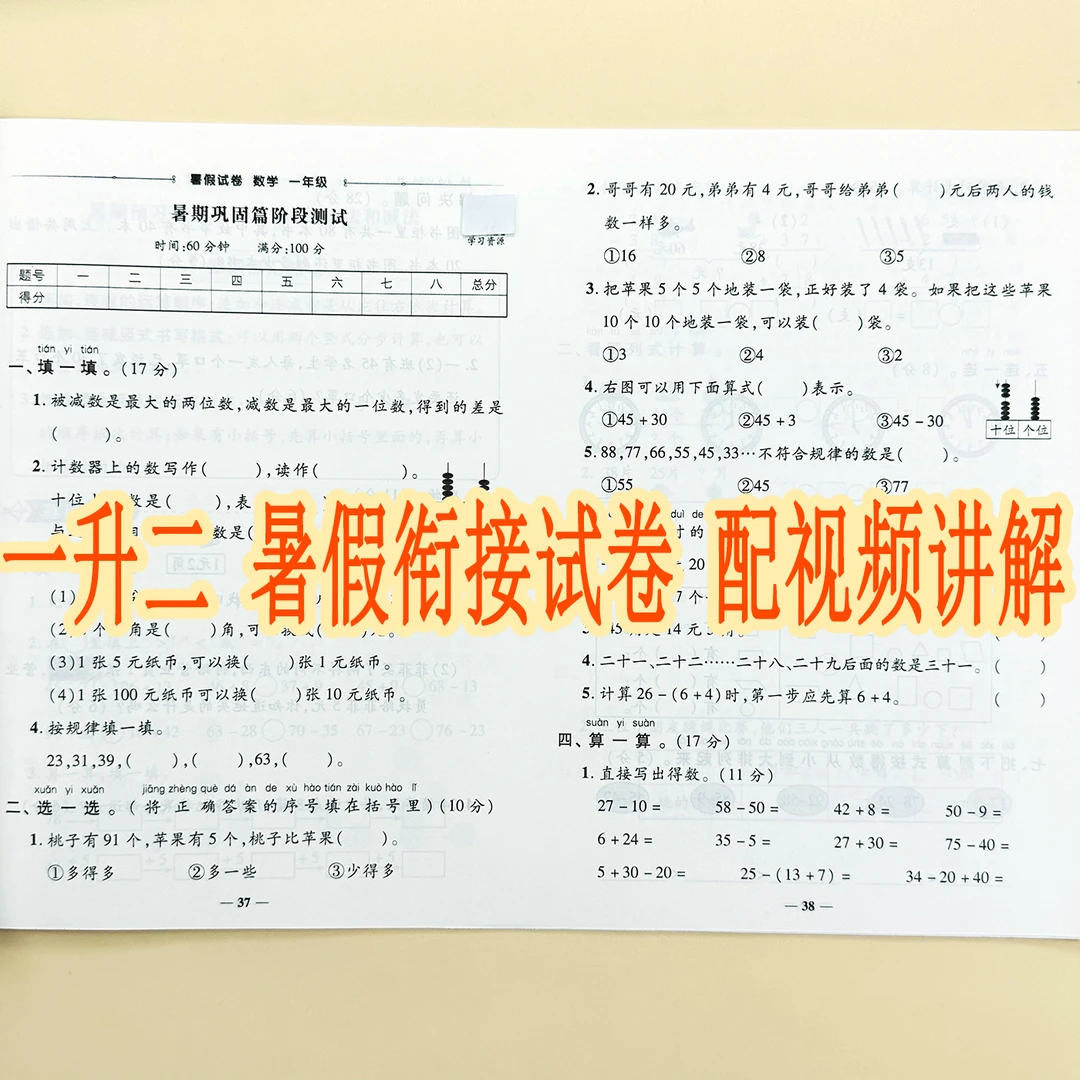 暑假试卷 数学 一年级
暑期巩固篇阶段测试
学习资源
时间:60分钟 满分:100分
题号 一 二 三 四 五 六 七 八 总分
得分
tián yi tián
一、填一填。(17分)
1. 被减数是最大的两位数,减数是最大的一位数,得到的差是
( )。
2. 计数器上的数写作( ),读作( )。
十位上 数是( ),表
与
数是(
(1)
(2) 个 角是( )角,可
(3)1张5元纸币,可以换( )张1元纸币。
(4)1张100元纸币可以换( )张10元纸币。
4. 按规律填一填。
23,31,39,( ),( ),( ),63,( )。
xuǎn yi xuǎn jiāng zhèng què dá àn de xù hào tián zài kuò hào lǐ
二、选一选。(将正确答案的序号填在括号里)(10分)
1. 桃子有91个,苹果有5个,桃子比苹果( )。
①多得多 ②多一些 ③少得多
— 37 —
2. 哥哥有20元,弟弟有4元,哥哥给弟弟( )元后两人的钱
数一样多。
①16 ②8 ③5
3. 把苹果5个5个地装一袋,正好装了4袋。如果把这些苹果
10个10个地装一袋,可以装( )袋。
①3 ②4 ③2
4. 右图可以用下面算式( )表示。
①45+30 ②45+3 ③45-30
十位 个位
5. 88,77,66,55,45,33…不符合规律的数是( )。
①55 ②45 ③77
duì de
的
一升二 暑假衔接试卷 配视频讲解
4. 二十一、二十二……二十八、二十九后面的数是三十一。( )
5. 计算26-(6+4)时,第一步应先算6+4。( )
suàn yi suàn
四、算一算。(17分)
1. 直接写出得数。(11分)
27-10= 58-50= 42+8= 50-9=
6+24= 35-5= 27+30= 75-40=
5+30-20= 25-(13+7)= 34-20+40=
— 38 —